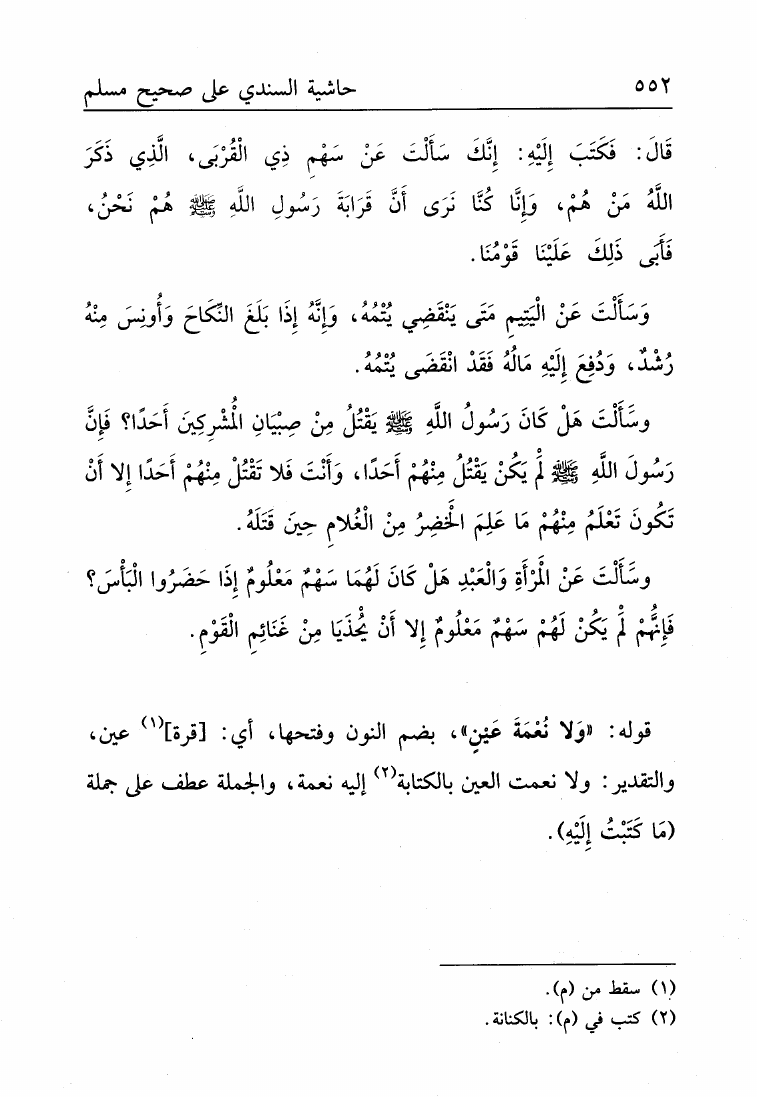 ٥٥٢ حاشية السندي على صحيح مسلم
قَالَ: فَكَتَبَ إِلَيْهِ: إِنَّكَ سَأَلْتَ عَنْ سَهْمِ ذِي الْقُرْبَى، الَّذِي ذَكَرَ
اللَّهُ مَنْ هُمْ، وَإِنَّا كُنَّا نَرَى أَنَّ قَرَابَةَ رَسُولِ اللَّهِ ﷺ هُمْ نَحْنُ،
فَأَبَى ذَلِكَ عَلَيْنَا قَوْمُنَا.
وَسَأَلْتَ عَنْ الْيَتِيمِ مَتَى يَنْقَضِي يُتْمُهُ، وَإِنَّهُ إِذَا بَلَغَ النِّكَاحَ وَأُونِسَ مِنْهُ
رُشْدٌ، وَدُفِعَ إِلَيْهِ مَالُهُ فَقَدْ انْقَضَى يُتْمُهُ.
وسََأَلْتَ هَلْ كَانَ رَسُولُ اللَّهِ ﷺ يَقْتُلُ مِنْ صِبْيَانِ الْمُشْرِكِينَ أَحَدًا؟ فَإِنَّ
رَسُولَ اللَّهِ ﷺ لَمْ يَكُنْ يَقْتُلُ مِنْهُمْ أَحَدًا، وَأَنْتَ فَلا تَقْتُلْ مِنْهُمْ أَحَدًا إِلا أَنْ
تَكُونَ تَعْلَمُ مِنْهُمْ مَا عَلِمَ الْخَضِرُ مِنْ الْغُلامِ حِينَ قَتَلَهُ.
وسََأَلْتَ عَنْ الْمَرْأَةِ وَالْعَبْدِ هَلْ كَانَ لَهُمَا سَهْمٌ مَعْلُومٌ إِذَا حَضَرُوا الْبَأْسَ؟
فَإِنَّهُمْ لَمْ يَكُنْ لَهُمْ سَهْمٌ مَعْلُومٌ إِلا أَنْ يُحْذَيَا مِنْ غَنَائِمِ الْقَوْمِ.
قوله: «وَلا نُعْمَةَ عَيْنٍ»، بضم النون وفتحها، أي: [قرة](١) عين،
والتقدير: ولا نعمت العين بالكتابة(٢) إليه نعمة، والجملة عطف على جملة
(مَا كَتَبْتُ إِلَيْهِ).
(١) سقط من (م).
(٢) كتب في (م): بالكنانة.